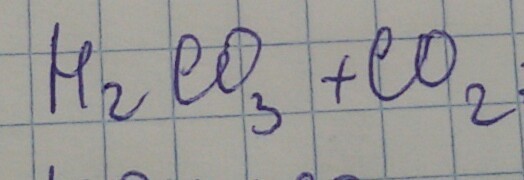 H₂CO₃ + CO₂